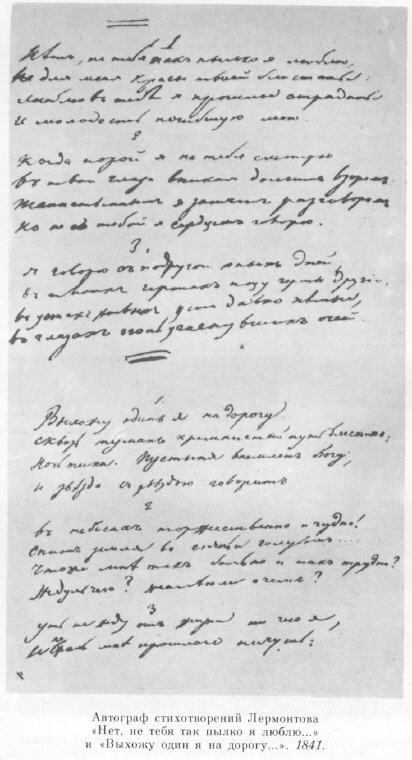 1
Нѣтъ, не тебя такъ пылко я люблю,
Не для меня красы твоей блистанье:
Люблю въ тебѣ я прошлое страданье
И молодость погибшую мою.
2
Когда порой я на тебя смотрю
Въ твои глаза вникая долгимъ взоромъ
Таинственнымъ я занятъ разговоромъ
Но не съ тобой я сердцемъ говорю.
3
Я говорю съ подругой юныхъ дней,
Въ твоихъ чертахъ ищу черты другія,
Въ устахъ живыхъ уста давно нѣмыя,
Въ глазахъ огонь угаснувшихъ очей.
Выхожу одинъ я на дорогу.
Сквозь туманъ кремнистый путь блеститъ;
Ночь тиха. Пустыня внемлетъ Богу,
И звѣзда съ звѣздою говоритъ
2
Въ небесахъ торжественно и чудно!
Спитъ земля въ сіяньи голубомъ....
Что же мнѣ такъ больно и такъ трудно?
Жду ль чего? жалѣю ли о чемъ?
3
Ужъ не жду отъ жизни ничего я,
И не жаль мнѣ прошлаго ничуть;
Автограф стихотворений Лермонтова
«Нет, не тебя так пылко я люблю...»
и «Выхожу один я на дорогу...». 1841.